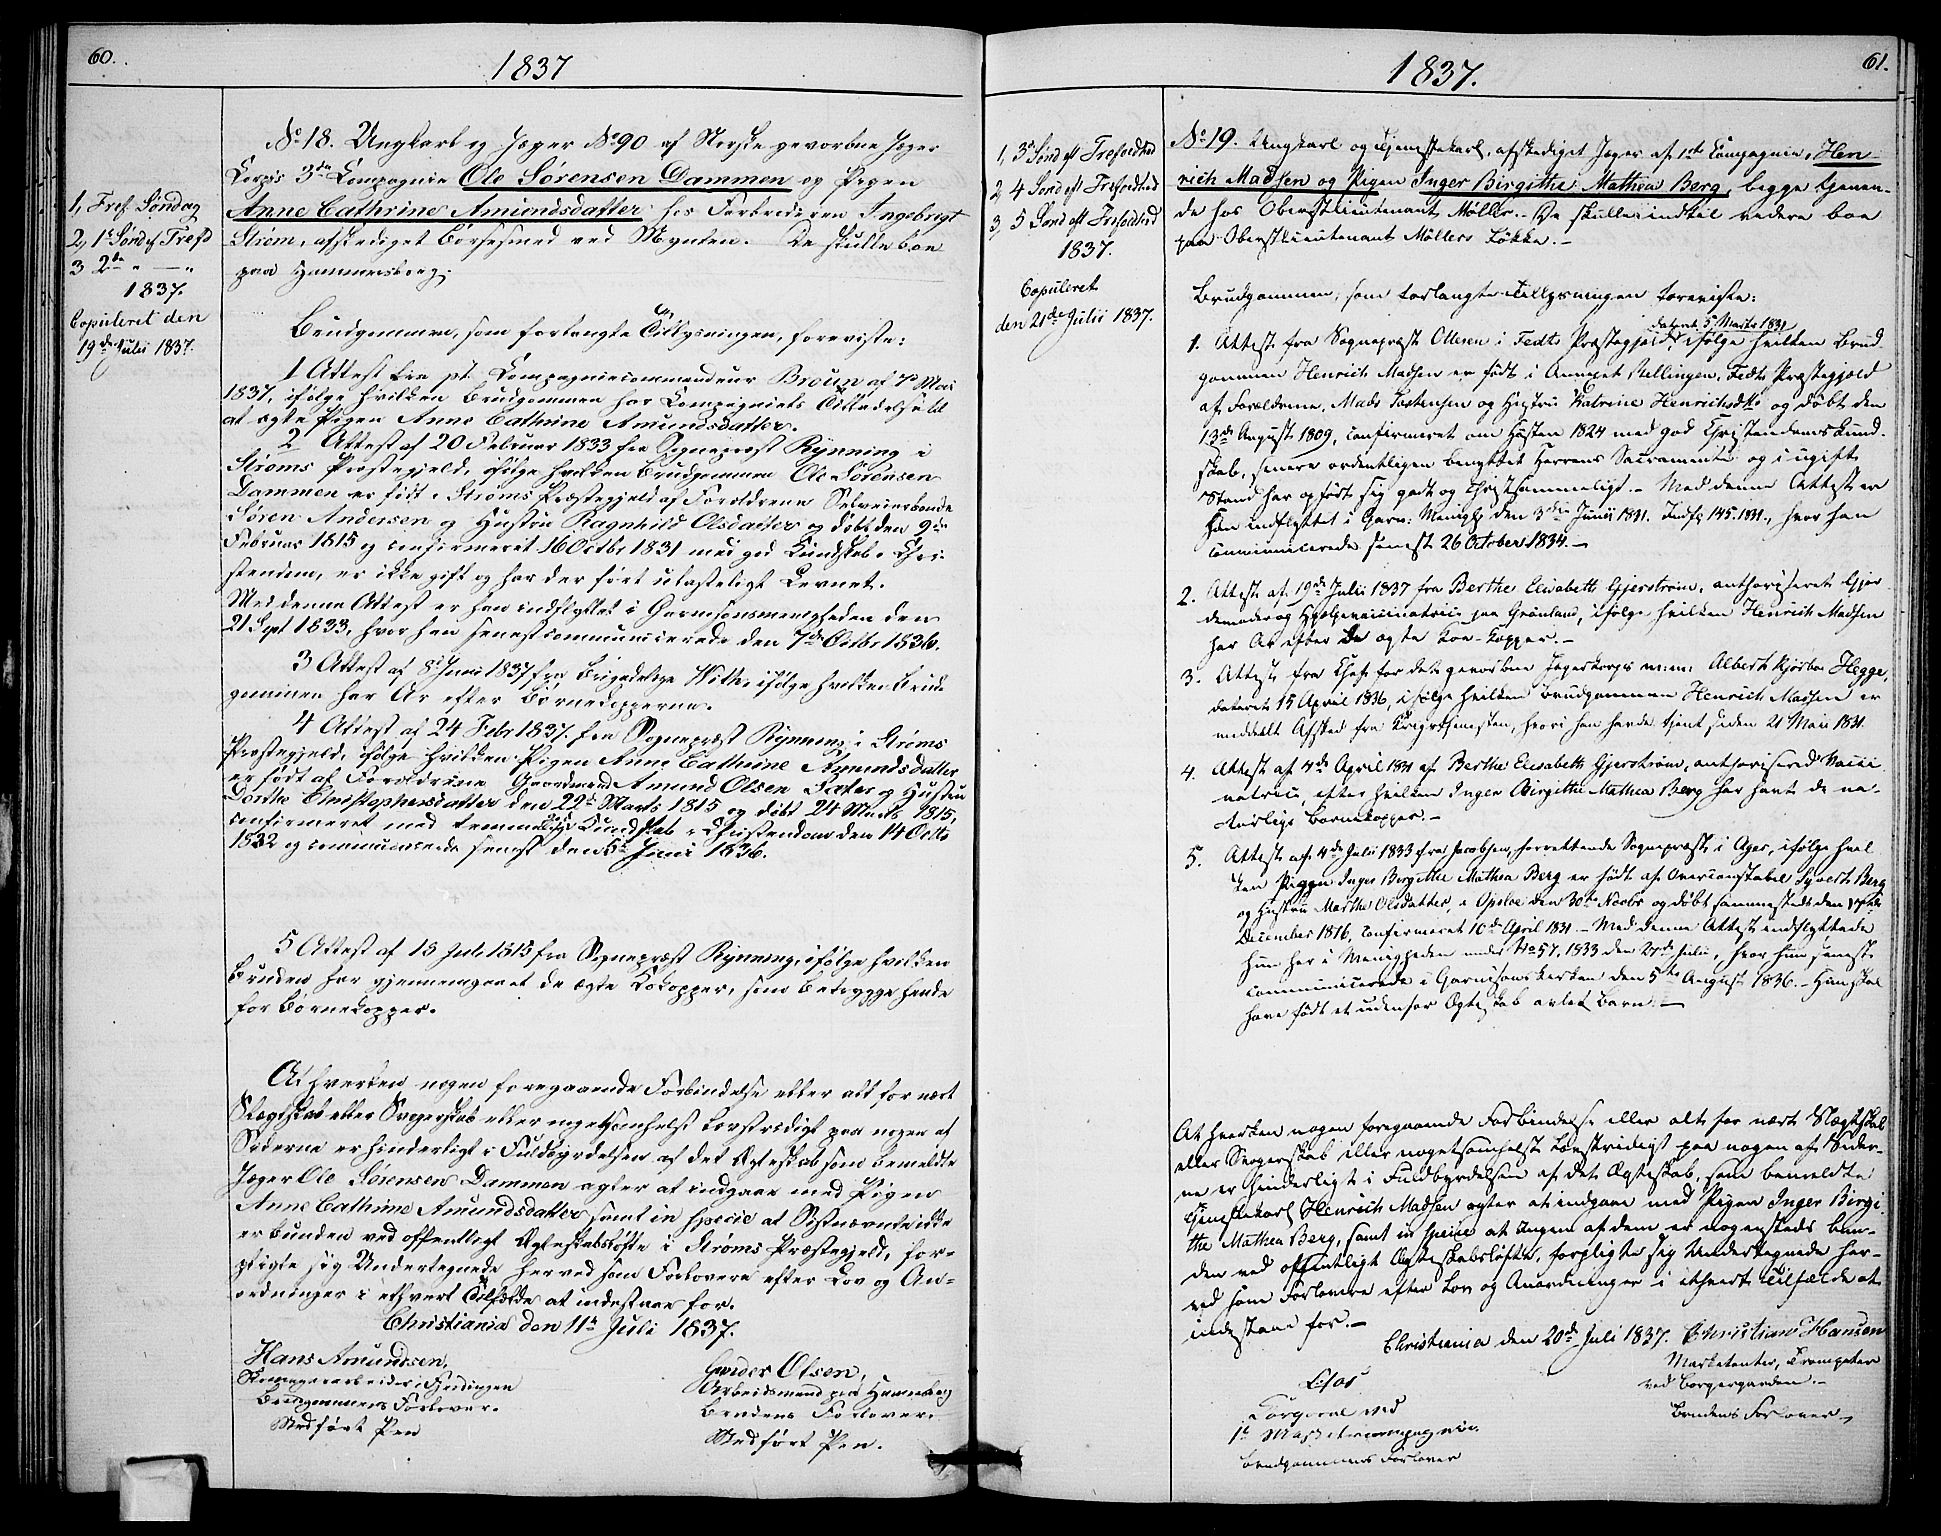 60.
1837
1, Tref. Søndag
2, 1ste Sønd ef Trefd
3 2den " — "
1837.
Copuleret den
19de Julii 1837.
No 18. Ungkarl og Jæger No 90 af Norske gevorbne Jæger
Corps 3die Compagnie Ole Sørensen Dammen og Pigen
Anne Cathrine Amundsdatter hos Forbrederen Ingebrigt
Strøm, afskediget Børsesmed ved Mynten. De skulle boe
paa Hammersborg.
Brudgommen, som forlangte Tillysningen, foreviste:
1 Attest fra pt. Compagniecommandeur Broun af 7de Mai
1837, ifølge hvilken Brudgommen har Compagniets Tilladelse til
at ægte Pigen Anne Cathrine Amundsdatter.
2 Attest af 20 Februar 1833 fra Sognepræst Rynning i
Strøms Præstegjeld, ifølge hvilken Brudgommen Ole Sørensen
Dammen er født i Strøms Præstegjeld af Forældrene Selveierbonde
Søren Andersen og Hustru Ragnhild Olsdatter og døbt den 9de
Februar 1815 og confirmeret 16 Octbr 1831 med god Kundskab i Chri-
stendom, er ikke gift og har der ført ulasteligt Levnet.
Med denne Attest er han indflyttet i Garnisonsmenigheden den
21 Sept 1833, hvor han senest communicerede den 7de Octbr 1836.
3 Attest af 8de Juni 1837 fra Brigadelæge Witth, ifølge hvilken Brud-
gommen har Ar efter Børnekopperne.
4 Attest af 24 Febr 1837. fra Sognepræst Rynning i Strøms
Præstegjeld, ifølge hvilken Pigen Anne Cathrine Amundsdatter
er født af Forældrene Gaardmand Amund Olsen Sater og Hustru
Dorthe Christophersdatter den 22de Marts 1815 og døbt 24 Marts 1815,
confirmeret med temmelig Kundskab i Christendom den 14 Octbr
1832 og communicerede senest den 5te Juni 1836.
5 Attest af 13 Juli 1815 fra Sognepræst Rynning, ifølge hvilken
Bruden har gjennemgaaet de ægte Kokopper, som betrygge hende
for Børnekopper.
At hverken nogen foregaaende Forbindelse eller alt for nært
Slægtskab eller Svogerskab eller nogetsomhelst Lovstridigt paa nogen af
Siderne er hinderligt i Fuldbyrdelsen af det Ægteskab som bemeldte
Jæger Ole Sørensen Dammen agter at indgaae med Pigen
Anne Cathrine Amundsdatter samt in specie at Sidstnævnte ikke
er bunden ved offentligt Ægteskabsløfte i Strøms Præstegjeld, for-
pligte sig Undertegnede herved som Forlovere efter Lov og An-
ordninger i ethvert Tilfælde at indestaae for.
Christiania den 11te Juli 1837.
Hans Amundsen,
Brudgommens Forlover.
Med ført Pen
Gunder Olsen,
Arbeidsmand paa Hammersborg
Brudens Forlover.
Med ført Pen.
61.
1837.
1, 3de Sønd eft Trefoldhed
2, 4 Sønd eft Trefoldhed
3, 5 Sønd eft Trefoldhed
1837.
Copuleret
den 21de Julii 1837.
No 19. Ungkarl og Tjenestekarl, afskediget Jæger af 1ste Compagnie, Hen-
rich Madsen og Pigen Inger Birgithe Mathea Berg, begge tjenen-
de hos Oberstlieutenant Møller. De skulle indtil videre boe
paa Oberstlieutenant Møllers Løkke.-
Brudgommen, som forlangte Tillysningen foreviste:
dateret 5 Marts 1831
1. Attest fra Sognepræst Ottesen i Fedts Præstegjeld, ifølge hvilken Brud-
gommen Henrich Madsen er født i Annexet Rellingen, Fedts Præstegjeld
af Forældrene, Mads Torstensen og Hustru Katrine Henrichsdtr og døbt den
13de August 1809, confirmeret om Høsten 1824 med god Christendomskund-
skab, senere ordentligen benyttet Herrens Sacramente og i ugift
Stand har opført sig godt og christsømmeligt.- Med denne Attest er
han indflyttet i Garn: Menigh: den 3die Junii 1831. Indfl 145.1831, hvor han
communicerede senest 26 October 1834.-
2. Attest af 19de Julii 1837 fra Berthe Elisabeth Gjerstrøm, authoriseret Gjor-
demoder og Hjelpevaccinatrice paa Grønland, ifølge hvilken Henrich Madsen
har Ar efter de ægte Koe-kopper.-
3. Attest fra Chef for det gevorbne Jægerkorps m: m: Albert Kjørboe Hegge,
dateret 15 April 1836, ifølge hvilken Brudgommen Henrich Madsen er
meddeelt Afsked fra Krigstjenesten, hvori han havde tjent siden 21 Maii 1831.
4. Attest af 4de April 1831 af Berthe Elisabeth Gjerstrøm, authoriseret Vacci-
natrice, efter hvilken Inger Birgitte Mathea Berg har havt de na-
turlige Børnekopper.-
5. Attest af 4de Julii 1833 fra Jacobsen, forrettende Sognepræst i Ager, ifølge hvil-
ken Pigen Inger Birgitte Mathea Berg er født af Overconstabel Syvert Berg
og Hustru Marthe Olsdatter, i Opsloe den 30te Novbr og døbt sammesteds den
December 1816, confirmeret 10de April 1831.- Med denne Attest indflyttede
hun her i Menigheden under No 57, 1833 den 27de Julii, hvor hun senest
communicerede i Garnisonskirken den 5te August 1836.- Hun skal
have født et udenfor Ægteskab avlet Barn.-
At hverken nogen foregaaende Forbindelse eller alt for nært Slægtskab
eller Svogerskab eller nogetsomhelst Lovstridigt paa nogen af Sider-
ne er hinderligt i Fuldbyrdelsen af det Ægteskab, som bemeldte
Tjenestekarl Henrich Madsen agter at indgaae med Pigen Inger Birgi-
the Mathea Berg, samt in specie at Ingen af dem er nogensteds bun-
den ved offentligt Ægteskabsløfte, forpligte sig Undertegnede her-
ved som Forlovere efter Lov og Anordninger i ethvert Tilfælde at
indestaae for.-
Christiania den 20de Juli 1837.
Christian Hansen
Marketenter, Trompeter
ved Borgergarden.-
Brudens Forlover,
ved
1ste
Brudgommens Forlover